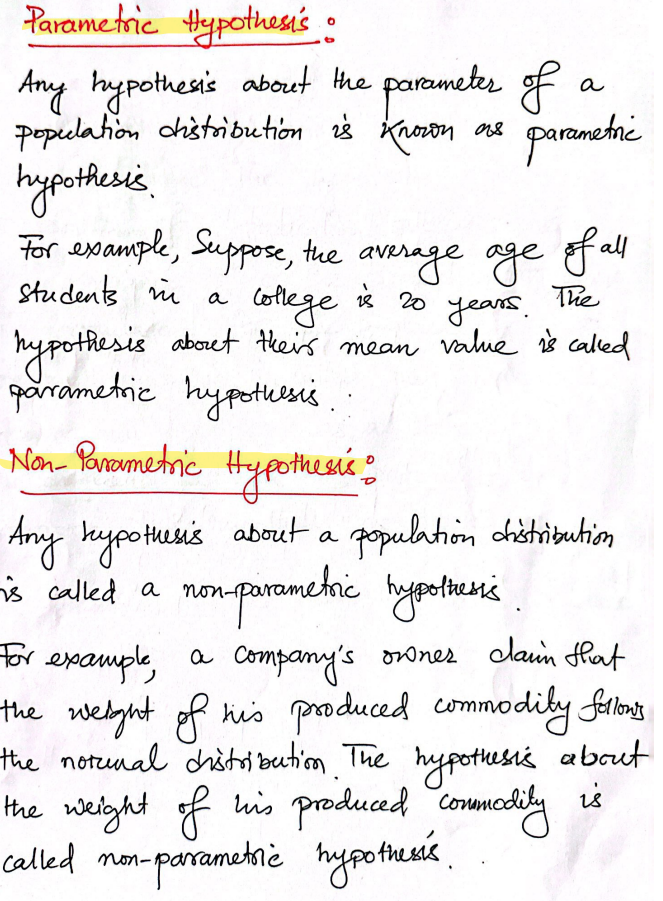 Parametric Hypothesis:
Any hypothesis about the parameter of a
population distribution is known as parametric
hypothesis.
For example, Suppose, the average age of all
students in a college is 20 years. The
hypothesis about their mean value is called
parametric hypothesis.
Non-Parametric Hypothesis:
Any hypothesis about a population distribution
is called a non-parametric hypothesis.
For example, a company's owner claim that
the weight of his produced commodity follows
the normal distribution. The hypothesis about
the weight of his produced commodity is
called non-parametric hypothesis.